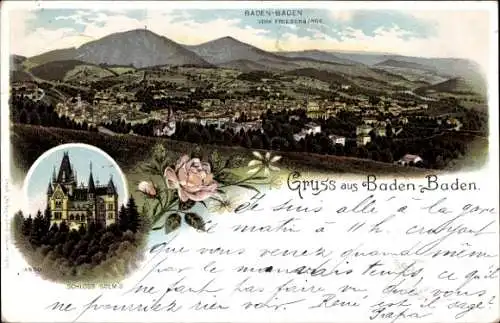 BADEN-BADEN
VOM FRIESENBERGE
Gruss aus Baden-Baden.
SCHLOSS SOLMS
Je suis allé à la gare
ce matin à 11 h. croyant
que vous venez quand même
par le mauvais temps, ce qui
vous aurait fait voir que vous
ne pourriez rien voir. René est il sage?
Papa